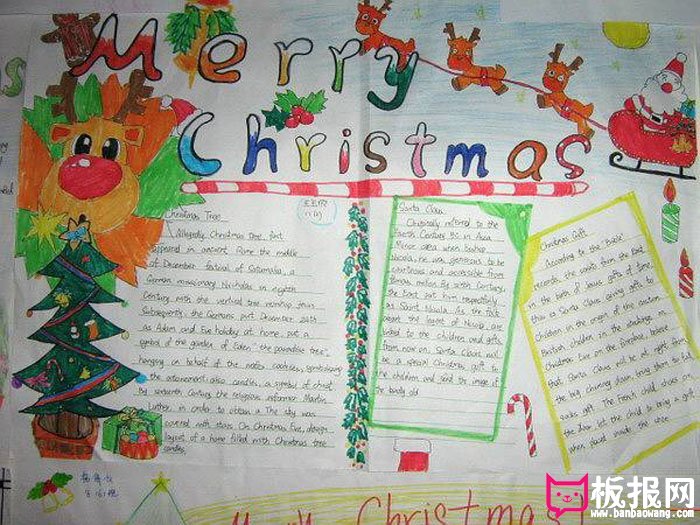 Merry
Christmas
Christmas Tree
Allegedly Christmas tree, first
appeared in ancient Rome the middle
of December festival of Saturnalia, a
German missionary Nicholas in eighth
Century with the vertical tree
Subsequently, the Germans put December 24th
as Adam and Eve holiday at home, put a
symbol of the garden of Eden "the paradise tree",
hanging on behalf of the cookies, symbolizing
the atonement; also candles, a symbol of christ
by sixteenth Century, the religious reformer Martin
Luther, in order to obtain a The sky was
covered with stars On Christmas Eve, design
layout of a home filled with Christmas tree
candles.
Santa Claus
originally referred to the
Fourth Century BC in Asia
Minor area when bishop
Nicola, he was generous to be
courteous and accessible from
Roman, million By sixth Century,
the East put him respectfully
as Saint Nicola. As the folk
about the legend of Nicola, are
linked to the children and gifts,
from now on, Santa Claus will
be a special Christmas gift to
the children and send the image of
the kindly old
Christmas Gift
According to the "Bible"
records, the saints from the East
in the birth of Jesus gifts of time,
this is Santa Claus giving gifts to
Children in the origin of the custom
British children in the stockings on
Christmas Eve on the fireplace, believe
that Santa Claus will be at night from
the big chimney down, bring them to full
socks gift. The French child shoes on
the door, let the child to bring a gift
when placed inside the shoe.
Merry Christmas
板报网
www.banbaowang.com